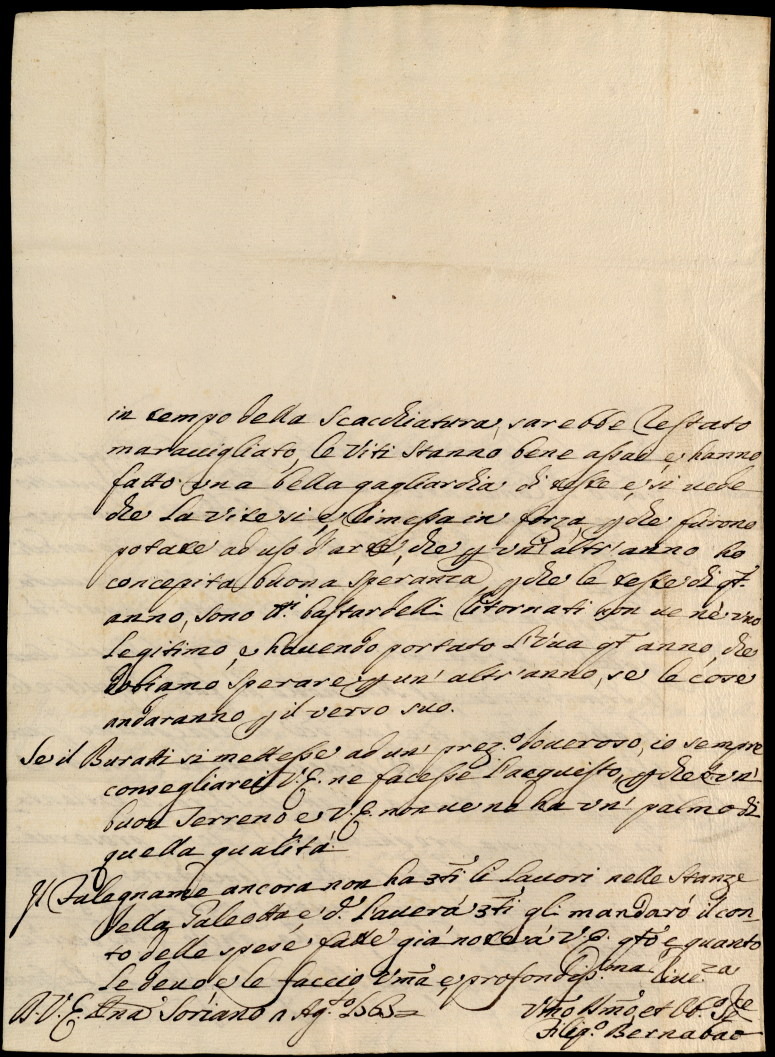 in tempo della Scacchiatura, sarebbe restato
maravigliato, le Viti stanno bene assae, e hanno
fatto una bella gagliardia di teste, e si vede
che la vite si è rimessa in forza, p che furono
potate ad uso d'arte, che p un altr'anno ho
concepita buona speranza, p che le teste di qt.
anno, sono tti. bastardelli ritornati non ve nè uno
legitimo, e havendo portato l'Uva qt. anno, che
dobiamo sperare p un' altr'anno, se le cose
andaranno p il verso suo.
Se il Buratti si mettesse ad un' prez.o doveroso, io sempre
consegliarei V.E. ne facesse l'acquisto, p che è un'
buon Terreno e V.E. non ve ne ha un' palmo di
quella qualità.
Il Falegname ancora non ha 3ti li lavori nelle Stanze
della Galeotta, e d. l'averà 3ti gli mandarò il con-
to delle spese fatte già note a V.E. qto. e quanto
le devo e le faccio Uma. e profondiss.ma rive.za
D.V.E. Soriano a Ag.o
Umo. Dmo. et Ob.o Sre
Filip.o Bernabao